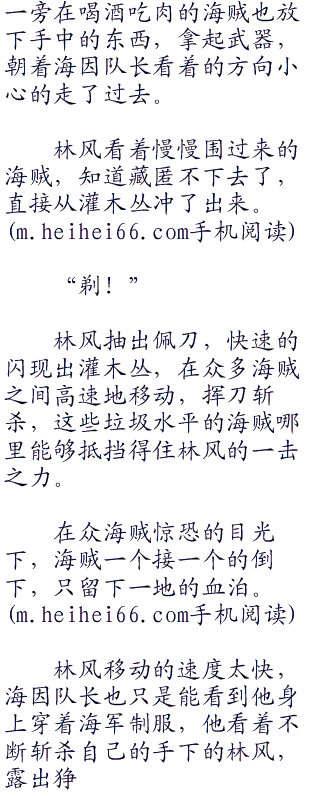 一旁在喝酒吃肉的海贼也放
下手中的东西，拿起武器，
朝着海因队长看着的方向小
心的走了过去。
林风看着慢慢围过来的
海贼，知道藏匿不下去了，
直接从灌木丛冲了出来。
(m.heihei66.com手机阅读)
“剃！”
林风抽出佩刀，快速的
闪现出灌木丛，在众多海贼
之间高速地移动，挥刀斩
杀，这些垃圾水平的海贼哪
里能够抵挡得住林风的一击
之力。
在众海贼惊恐的目光
下，海贼一个接一个的倒
下，只留下一地的血泊。
(m.heihei66.com手机阅读)
林风移动的速度太快，
海因队长也只是能看到他身
上穿着海军制服，他看着不
断斩杀自己的手下的林风，
露出狰